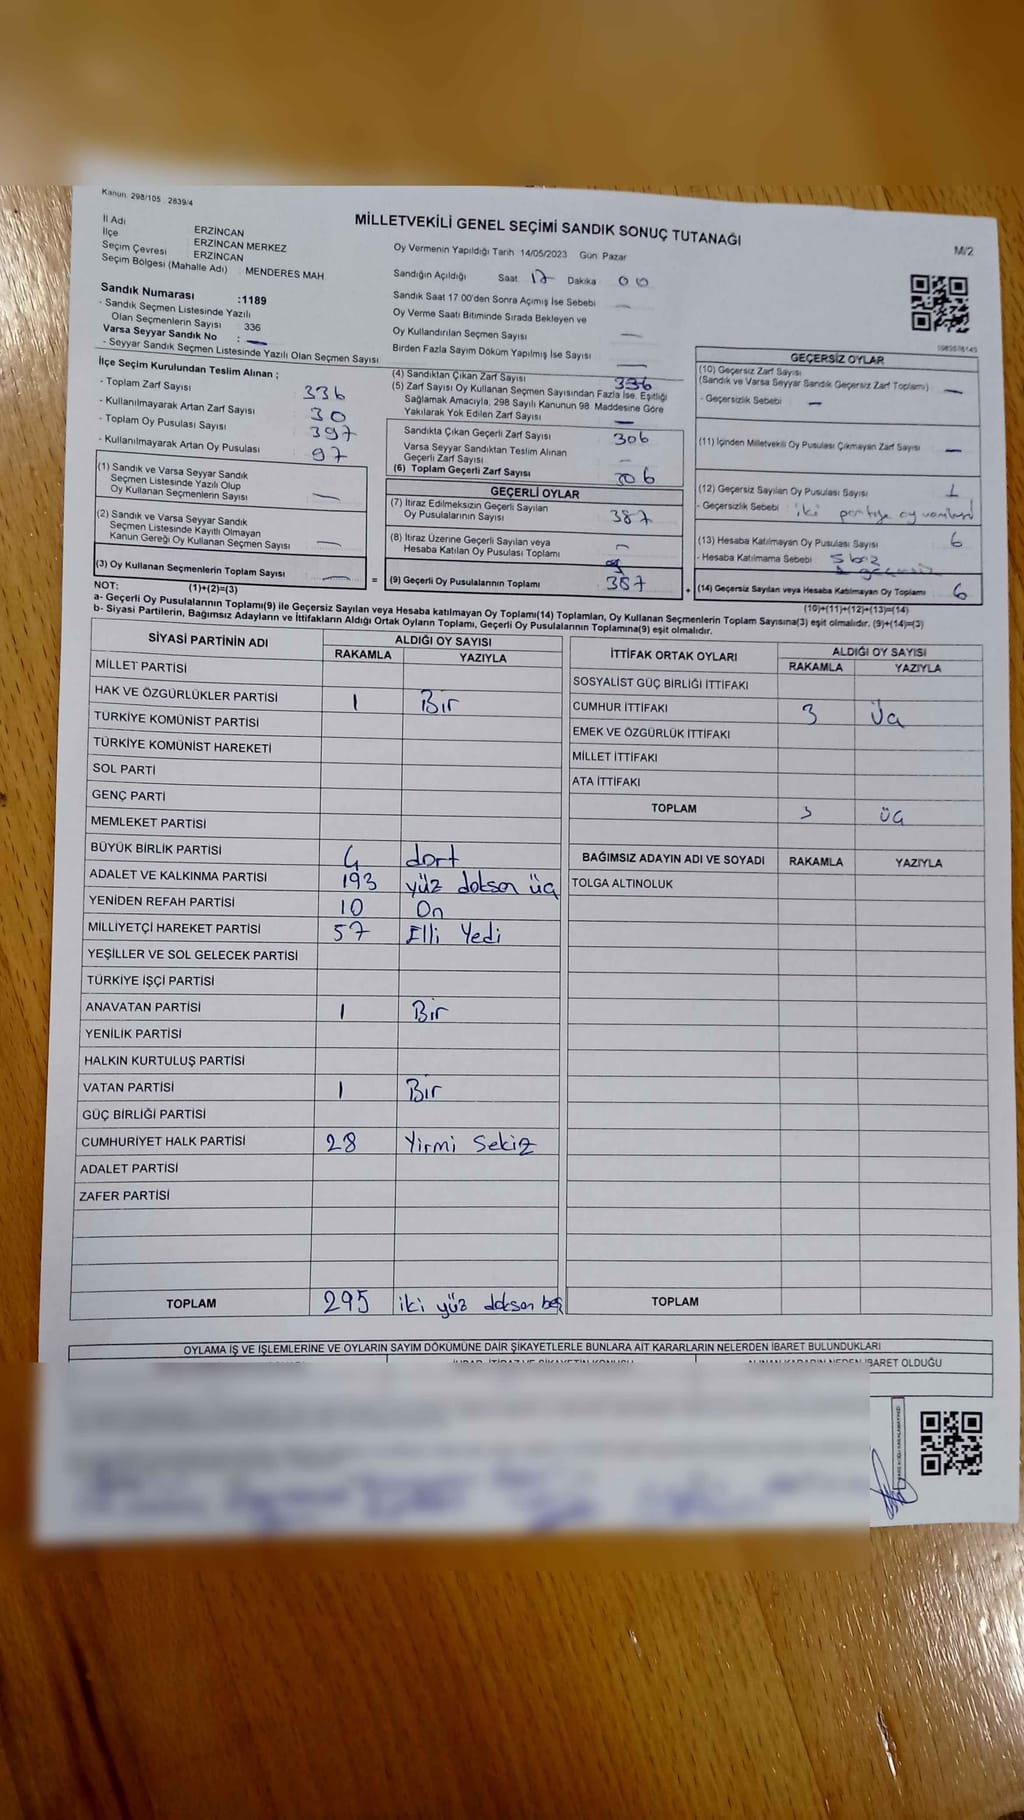 Kanun: 298/105 , 2839/4
MİLLETVEKİLİ GENEL SEÇİMİ SANDIK SONUÇ TUTANAĞI
M/2
İl Adı ERZİNCAN
İlçe ERZİNCAN MERKEZ
Seçim Çevresi ERZİNCAN
Seçim Bölgesi (Mahalle Adı) MENDERES MAH
Sandık Numarası :1189
- Sandık Seçmen Listesinde Yazılı
Olan Seçmenlerin Sayısı 336
Varsa Seyyar Sandık No : —
- Seyyar Sandık Seçmen Listesinde Yazılı Olan Seçmen Sayısı
Oy Vermenin Yapıldığı Tarih 14/05/2023 Gün Pazar
Sandığın Açıldığı Saat 17 Dakika 00
Sandık Saat 17:00'den Sonra Açımış İse Sebebi —
Oy Verme Saati Bitiminde Sırada Bekleyen ve
Oy Kullandırılan Seçmen Sayısı —
Birden Fazla Sayım Döküm Yapılmış İse Sayısı —
İlçe Seçim Kurulundan Teslim Alınan ;
- Toplam Zarf Sayısı 336
- Kullanılmayarak Artan Zarf Sayısı 30
- Toplam Oy Pusulası Sayısı 397
- Kullanılmayarak Artan Oy Pusulası 97
(1) Sandık ve Varsa Seyyar Sandık
Seçmen Listesinde Yazılı Olup
Oy Kullanan Seçmenlerin Sayısı —
(2) Sandık ve Varsa Seyyar Sandık
Seçmen Listesinde Kayıtlı Olmayan
Kanun Gereği Oy Kullanan Seçmen Sayısı —
(3) Oy Kullanan Seçmenlerin Toplam Sayısı —
(1)+(2)=(3)
(4) Sandıktan Çıkan Zarf Sayısı 336
(5) Zarf Sayısı Oy Kullanan Seçmen Sayısından Fazla İse, Eşitliği
Sağlamak Amacıyla, 298 Sayılı Kanunun 98. Maddesine Göre
Yakılarak Yok Edilen Zarf Sayısı —
Sandıkta Çıkan Geçerli Zarf Sayısı 306
Varsa Seyyar Sandıktan Teslim Alınan
Geçerli Zarf Sayısı —
(6) Toplam Geçerli Zarf Sayısı 306
GEÇERLİ OYLAR
(7) İtiraz Edilmeksizin Geçerli Sayılan
Oy Pusulalarının Sayısı 387
(8) İtiraz Üzerine Geçerli Sayılan veya
Hesaba Katılan Oy Pusulası Toplamı —
= (9) Geçerli Oy Pusulalarının Toplamı 387
GEÇERSİZ OYLAR
(10) Geçersiz Zarf Sayısı
(Sandık ve Varsa Seyyar Sandık Geçersiz Zarf Toplamı) —
- Geçersizlik Sebebi : —
(11) İçinden Milletvekili Oy Pusulası Çıkmayan Zarf Sayısı —
(12) Geçersiz Sayılan Oy Pusulası Sayısı 1
- Geçersizlik Sebebi : iki partiye oy
(13) Hesaba Katılmayan Oy Pusulası Sayısı 6
- Hesaba Katılmama Sebebi
+ (14) Geçersiz Sayılan veya Hesaba Katılmayan Oy Toplamı 6
(10)+(11)+(12)+(13)=(14)
NOT:
a- Geçerli Oy Pusulalarının Toplamı(9) ile Geçersiz Sayılan veya Hesaba katılmayan Oy Toplamı(14) Toplamları, Oy Kullanan Seçmenlerin Toplam Sayısına(3) eşit olmalıdır. (9)+(14)=(3)
b- Siyasi Partilerin, Bağımsız Adayların ve İttifakların Aldığı Ortak Oyların Toplamı, Geçerli Oy Pusulalarının Toplamına(9) eşit olmalıdır.
SİYASİ PARTİNİN ADI ALDIĞI OY SAYISI
RAKAMLA YAZIYLA
MİLLET PARTİSİ
HAK VE ÖZGÜRLÜKLER PARTİSİ 1 Bir
TÜRKİYE KOMÜNİST PARTİSİ
TÜRKİYE KOMÜNİST HAREKETİ
SOL PARTİ
GENÇ PARTİ
MEMLEKET PARTİSİ
BÜYÜK BİRLİK PARTİSİ 4 dort
ADALET VE KALKINMA PARTİSİ 193 yüz doksan üç
YENİDEN REFAH PARTİSİ 10 On
MİLLİYETÇİ HAREKET PARTİSİ 57 Elli Yedi
YEŞİLLER VE SOL GELECEK PARTİSİ
TÜRKİYE İŞÇİ PARTİSİ
ANAVATAN PARTİSİ 1 Bir
YENİLİK PARTİSİ
HALKIN KURTULUŞ PARTİSİ
VATAN PARTİSİ 1 Bir
GÜÇ BİRLİĞİ PARTİSİ
CUMHURİYET HALK PARTİSİ 28 Yirmi Sekiz
ADALET PARTİSİ
ZAFER PARTİSİ
TOPLAM 295 iki yüz doksan beş
İTTİFAK ORTAK OYLARI ALDIĞI OY SAYISI
RAKAMLA YAZIYLA
SOSYALİST GÜÇ BİRLİĞİ İTTİFAKI
CUMHUR İTTİFAKI 3 Üç
EMEK VE ÖZGÜRLÜK İTTİFAKI
MİLLET İTTİFAKI
ATA İTTİFAKI
TOPLAM 3 üç
BAĞIMSIZ ADAYIN ADI VE SOYADI RAKAMLA YAZIYLA
TOLGA ALTINOLUK
TOPLAM
OYLAMA İŞ VE İŞLEMLERİNE VE OYLARIN SAYIM DÖKÜMÜNE DAİR ŞİKAYETLERLE BUNLARA AİT KARARLARIN NELERDEN İBARET BULUNDUKLARI
İBARET OLDUĞU